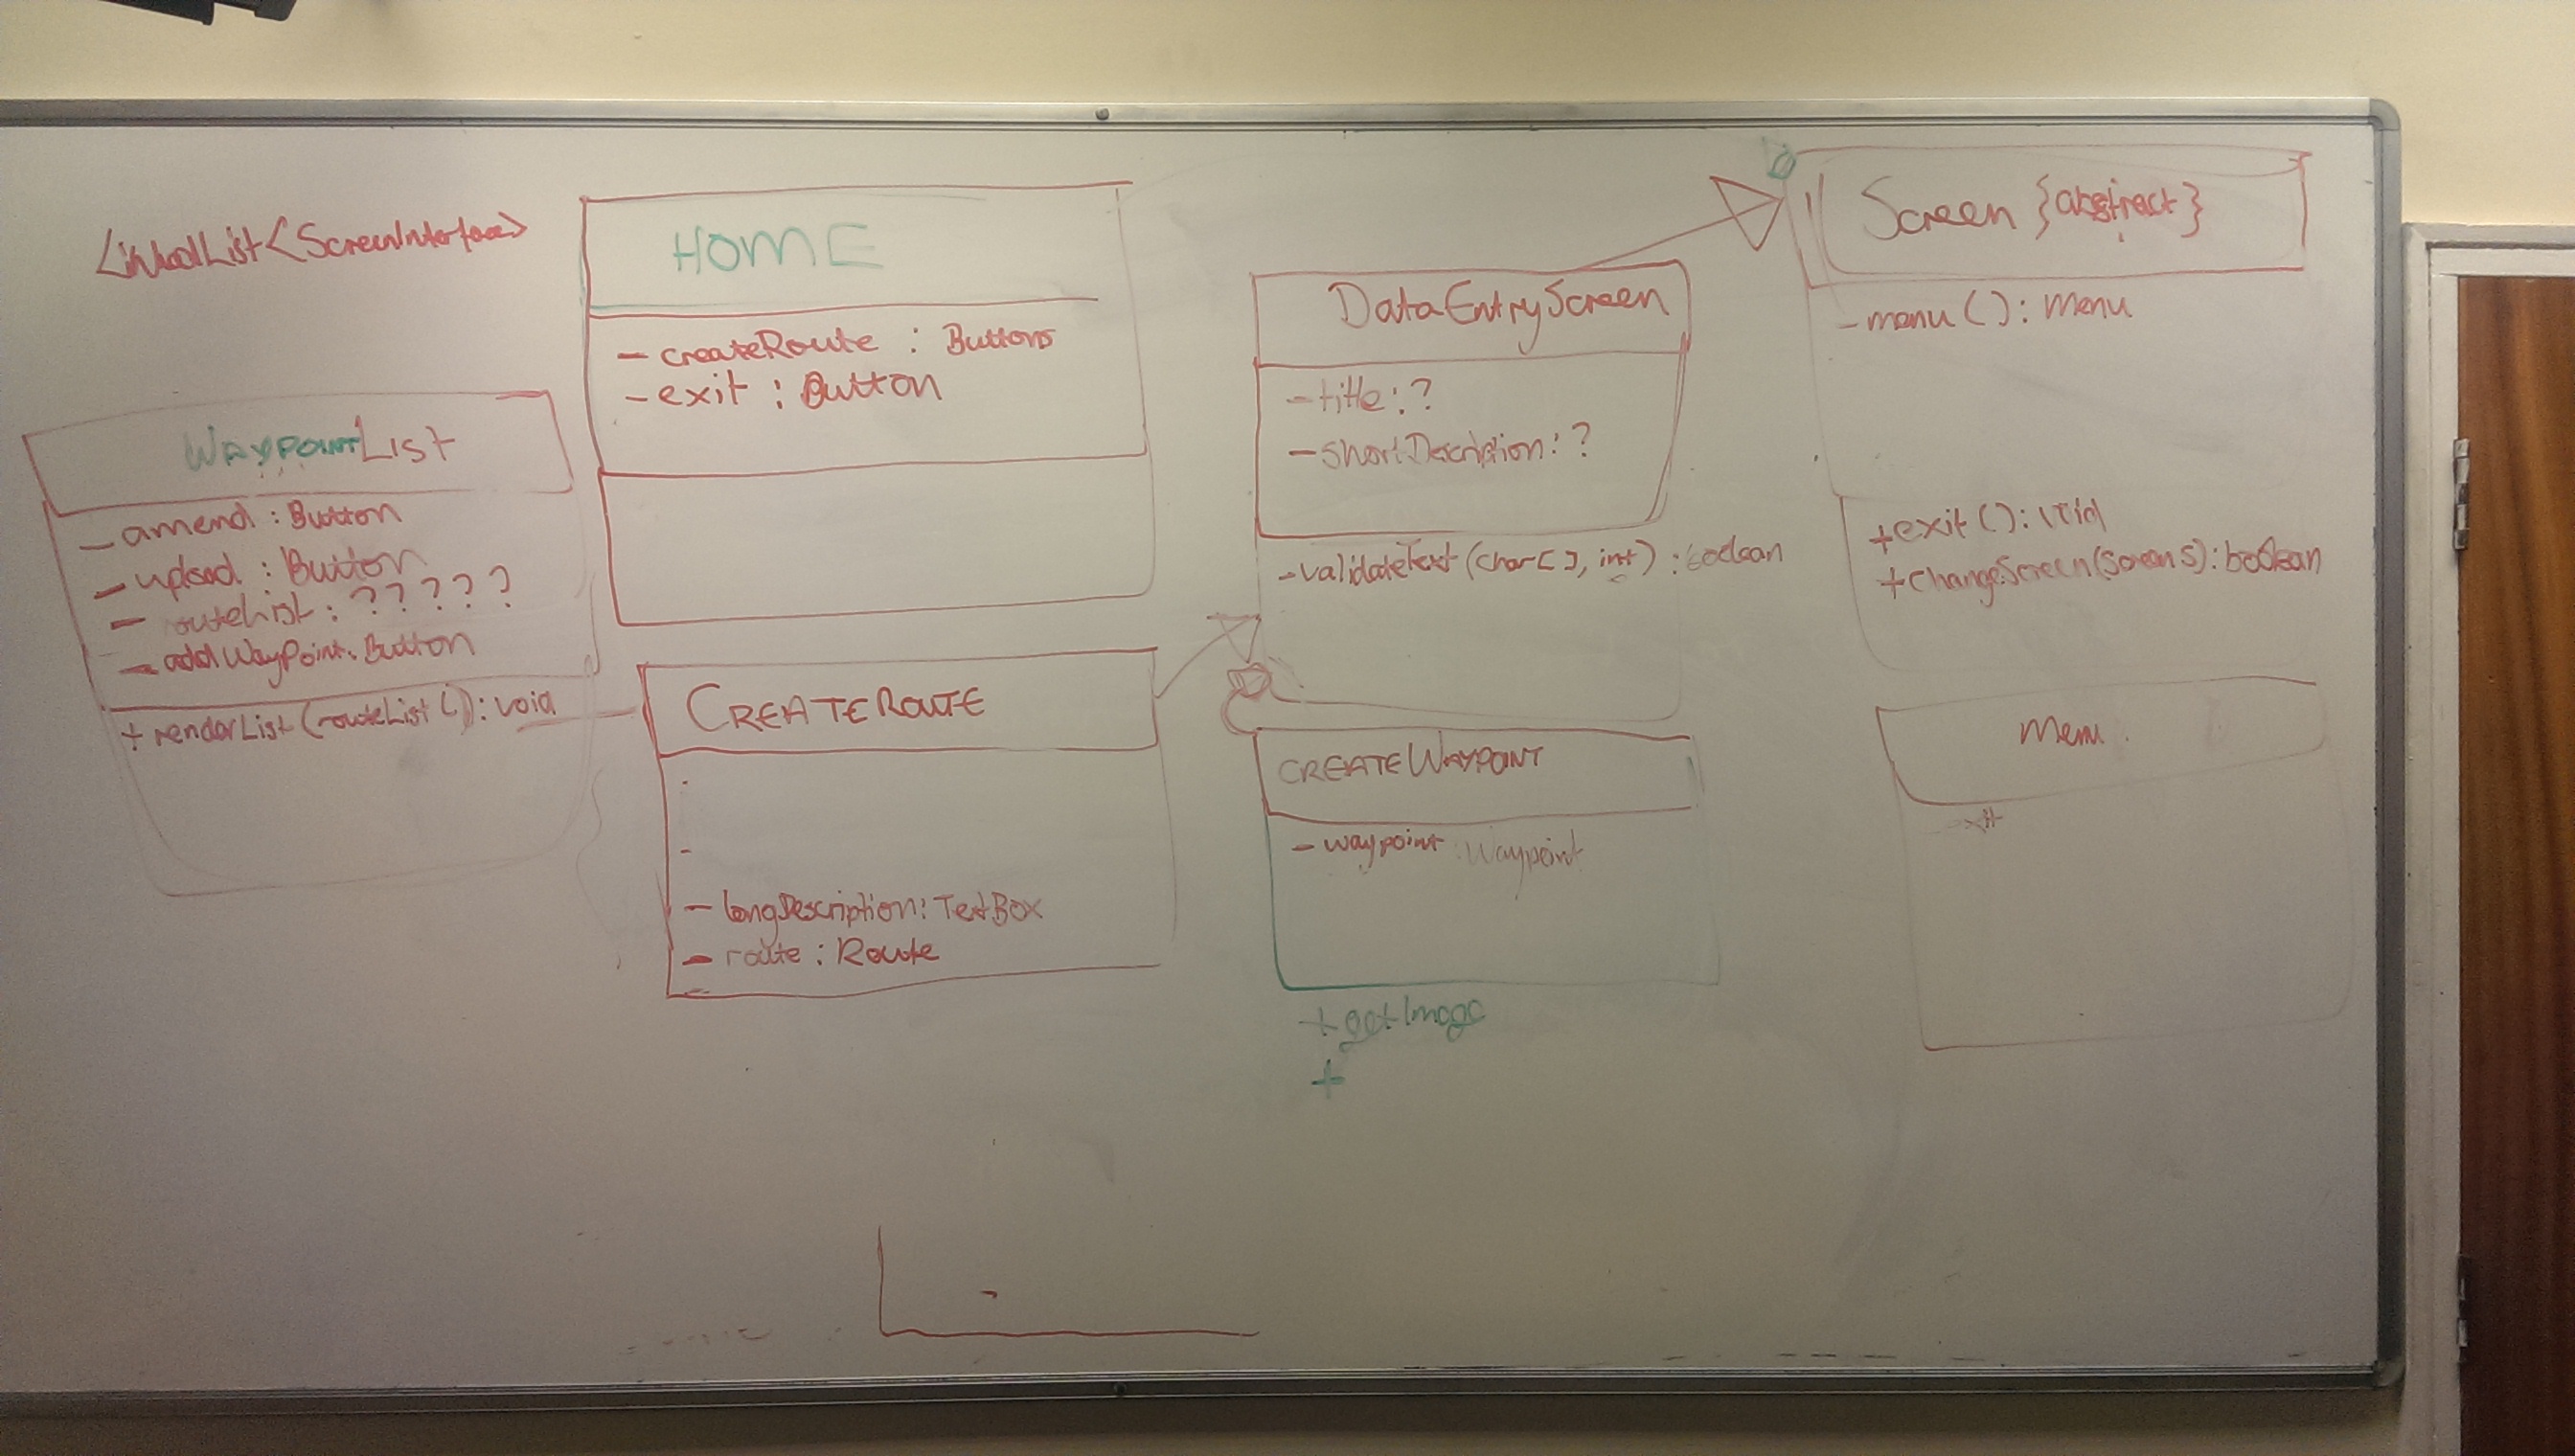 LinkedList<ScreenInterface>
HOME
- createRoute : Buttons
- exit : Button
WAYPOINTList
- amend : Button
- upload : Button
- routeList : ?????
- addWayPoint : Button
+ renderList (routeList ()) : void
CREATEROUTE
-
-
- longDescription : TextBox
- route : Route
DataEntryScreen
- title : ?
- shortDescription : ?
- validateText (char[], int) : boolean
CREATEWAYPOINT
- waypoint : Waypoint
+ getImage
+
Screen {abstract}
- menu () : Menu
+ exit () : void
+ changeScreen(Screen s) : boolean
Menu
-